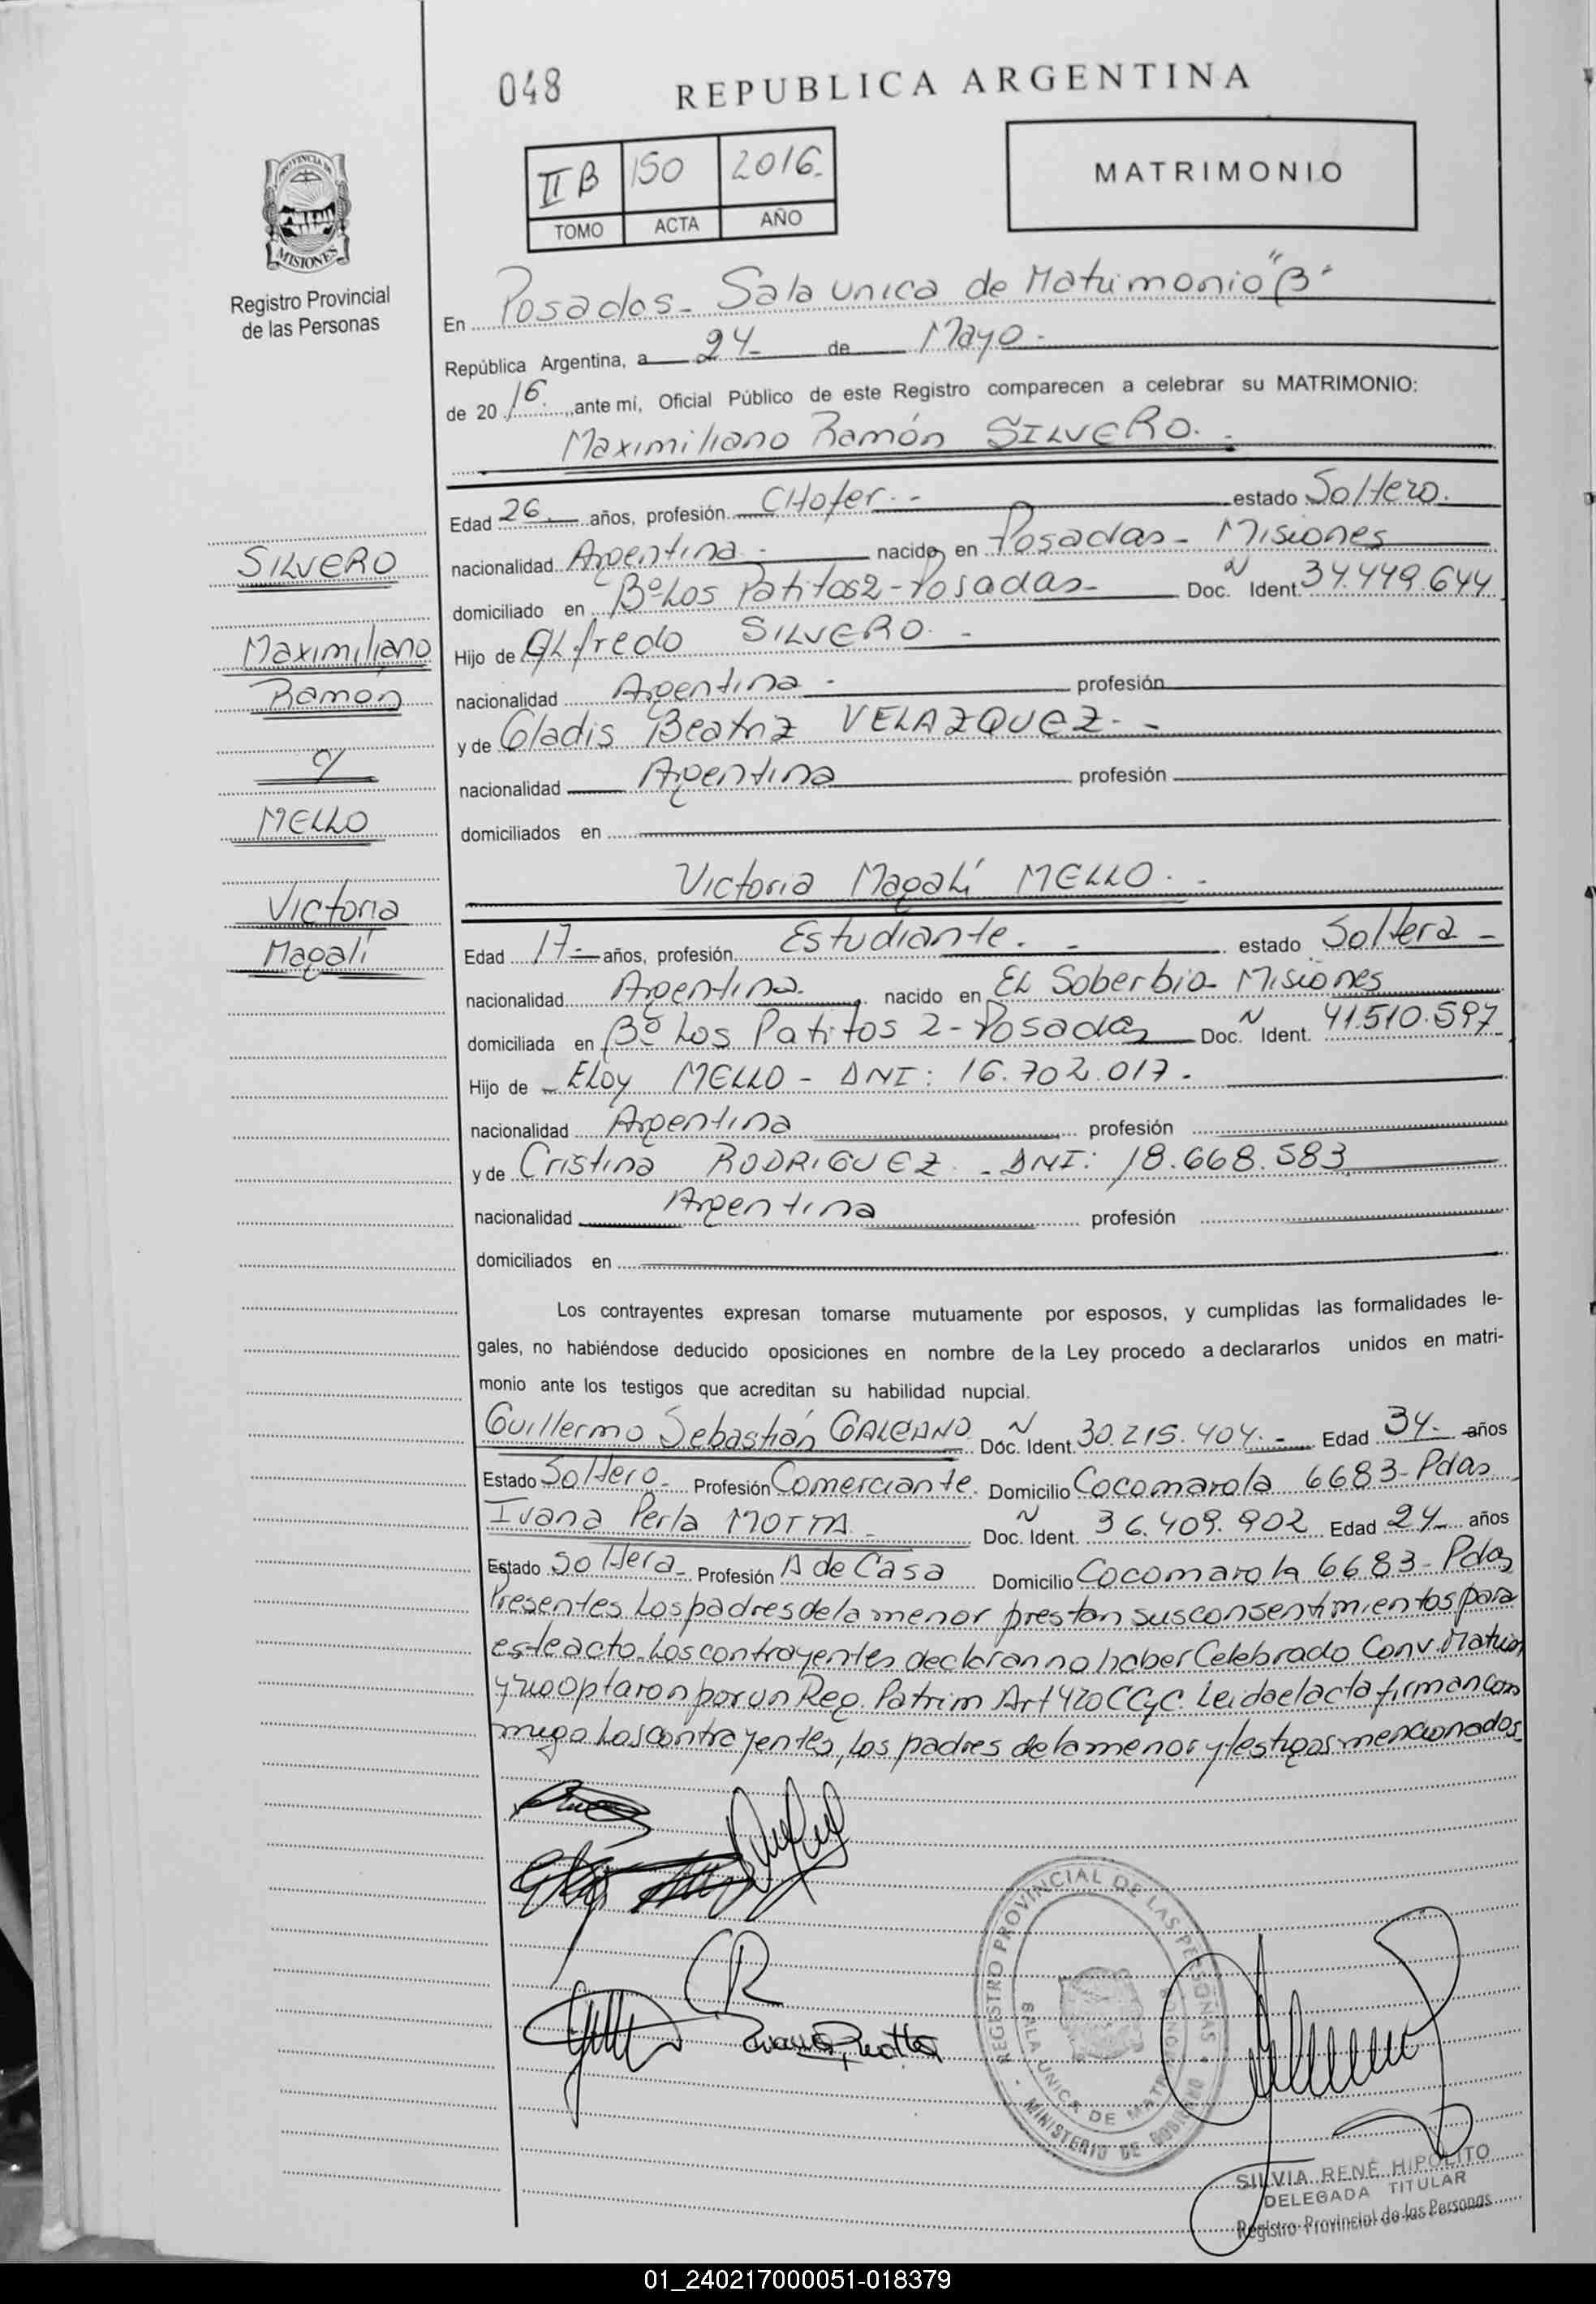 048
REPUBLICA ARGENTINA
II B 150 2016.
TOMO ACTA AÑO
MATRIMONIO
PROVINCIA DE
MISIONES
Registro Provincial
de las Personas
En Posadas - Sala unica de Matrimonio "B"
República Argentina, a 24 - de Mayo -
de 20 16. ante mí, Oficial Público de este Registro comparecen a celebrar su MATRIMONIO:
Maximiliano Ramón SILVERO. -
Edad 26. años, profesión CHofer. - estado Soltero.
nacionalidad Argentina - nacido en Posadas - Misiones
domiciliado en Bº Los Patitos 2 - Posadas - Doc. N Ident. 34.449.644
Hijo de ALfredo SILVERO. -
nacionalidad Argentina - profesión
y de Gladis Beatriz VELAZQUEZ. -
nacionalidad Argentina profesión
domiciliados en
SILVERO
Maximiliano
Ramón
y
MELLO
Victoria
Magalí
Victoria Magalí MELLO. -
Edad 17 - años, profesión Estudiante. - estado Soltera -
nacionalidad Argentina. nacido en EL Soberbio - Misiones
domiciliada en Bº Los Patitos 2 - Posadas Doc. N Ident. 41.510.597
Hijo de Eloy MELLO - DNI: 16.702.017 -
nacionalidad Argentina profesión
y de Cristina RODRIGUEZ - DNI: 18.668.583
nacionalidad Argentina profesión
domiciliados en
Los contrayentes expresan tomarse mutuamente por esposos, y cumplidas las formalidades le-
gales, no habiéndose deducido oposiciones en nombre de la Ley procedo a declararlos unidos en matri-
monio ante los testigos que acreditan su habilidad nupcial.
Guillermo Sebastián GALEANO Doc. N Ident. 30.215.404. - Edad 34 - años
Estado Soltero - Profesión Comerciante. Domicilio Cocomarola 6683 - Pdas
Ivana Perla MOTTA - Doc. N Ident. 36.409.902 Edad 24 - años
Estado Soltera - Profesión A de Casa Domicilio Cocomarola 6683 - Pdas
Presentes Los padres de la menor prestan sus consentimientos para
este acto. Los contrayentes declaran no haber Celebrado Conv. Matrim
y no optaron por un Reg. Patrim Art 420 CCyC. Leida el acta firman con
migo Los contrayentes, Los padres de la menor y testigos mencionados
REGISTRO PROVINCIAL DE LAS PERSONAS
SALA UNICA DE MATRIMONIO
MINISTERIO DE GOBIERNO
SILVIA RENÉ HIPOLITO
DELEGADA TITULAR
Registro Provincial de las Personas
01_240217000051-018379